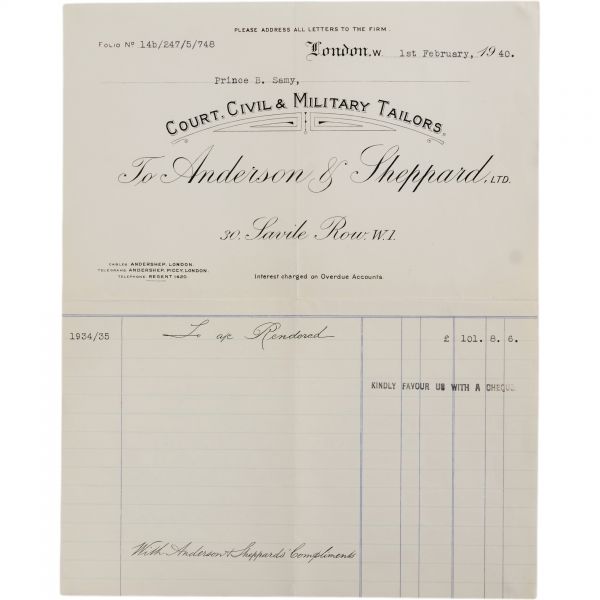 PLEASE ADDRESS ALL LETTERS TO THE FIRM.
FOLIO Nº 14b/247/5/748
London, W 1st February, 1940.
Prince B. Samy,
COURT, CIVIL & MILITARY TAILORS.
To Anderson & Sheppard, LTD.
30, Savile Row, W.1.
CABLES ANDERSHEP, LONDON.
TELEGRAMS ANDERSHEP, PICCY, LONDON.
TELEPHONE REGENT 1420.
Interest charged on Overdue Accounts.
1934/35 To a/c Rendered £ 101. 8. 6.
KINDLY FAVOUR US WITH A CHEQUE
With Anderson & Sheppard's Compliments